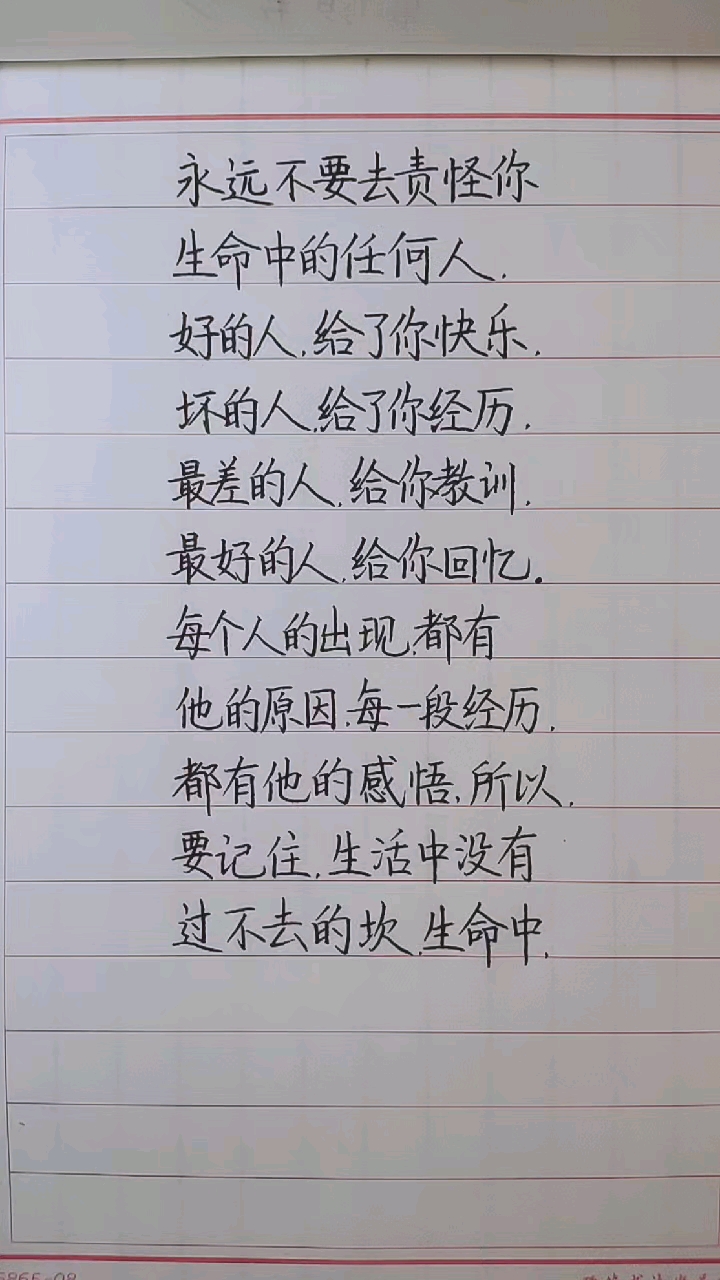 永远不要去责怪你
生命中的任何人.
好的人.给了你快乐.
坏的人.给了你经历.
最差的人.给你教训.
最好的人.给你回忆。
每个人的出现.都有
他的原因.每一段经历.
都有他的感悟.所以.
要记住.生活中没有
过不去的坎.生命中.